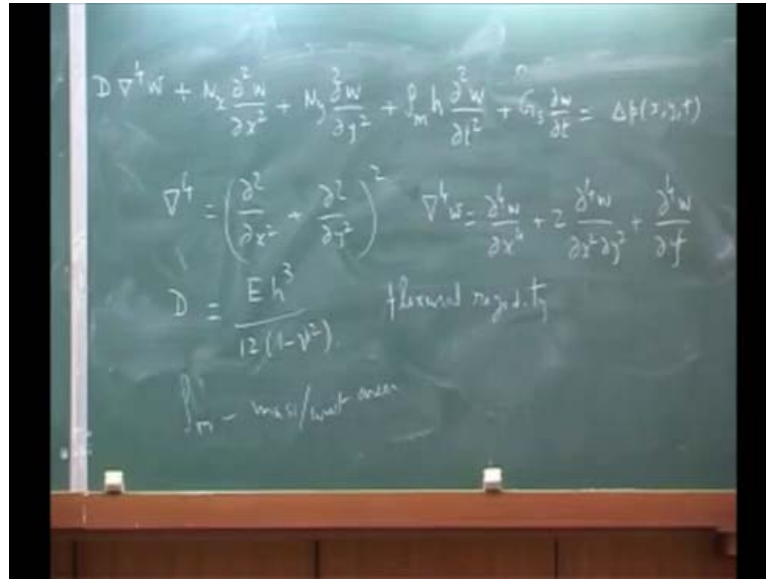 D ∇⁴w + N_x ∂²w/∂x² + N_y ∂²w/∂y² + ρ_m h ∂²w/∂t² + G_s ∂w/∂t = Δp(x,y,t)
∇⁴ = (∂²/∂x² + ∂²/∂y²)² ∇⁴w = ∂⁴w/∂x⁴ + 2 ∂⁴w/∂x²∂y² + ∂⁴w/∂y⁴
D = Eh³/12(1-ν²) flexural rigidity
ρ_m - mass/unit area